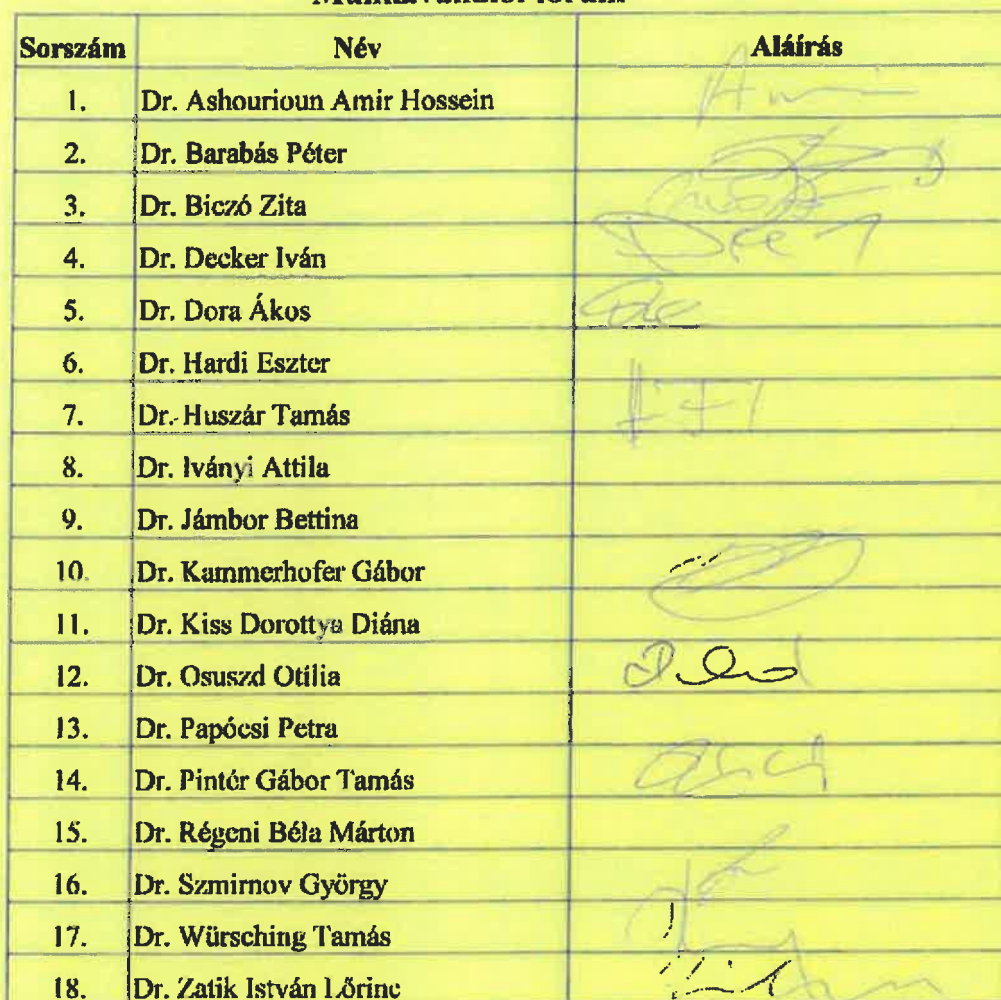 Sorszám Név Aláírás
1. Dr. Ashourioun Amir Hossein
2. Dr. Barabás Péter
3. Dr. Biczó Zita
4. Dr. Decker Iván
5. Dr. Dora Ákos
6. Dr. Hardi Eszter
7. Dr. Huszár Tamás
8. Dr. Iványi Attila
9. Dr. Jámbor Bettina
10. Dr. Kammerhofer Gábor
11. Dr. Kiss Dorottya Diána
12. Dr. Osuszd Otília
13. Dr. Papócsi Petra
14. Dr. Pintér Gábor Tamás
15. Dr. Régeni Béla Márton
16. Dr. Szmirnov György
17. Dr. Würsching Tamás
18. Dr. Zatik István Lőrinc